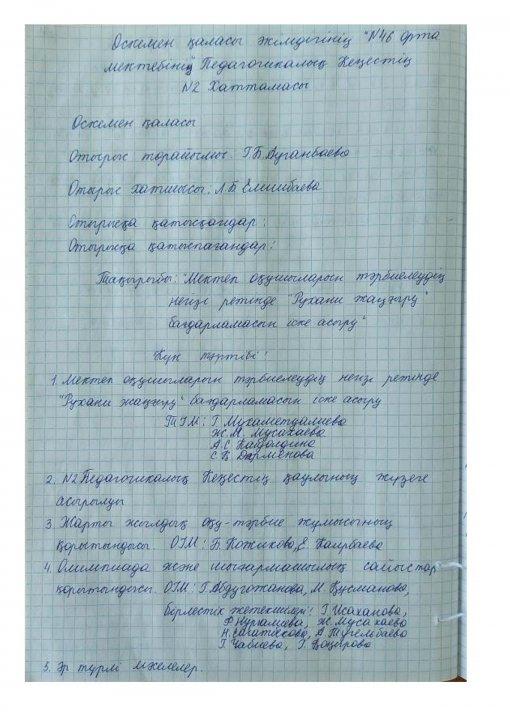 Өскемен қаласы әкімдігінің "N46 орта
мектебінің" Педагогикалық Кеңестің
N2 Хаттамасы
Өскемен қаласы
Отырыс төрайымы: Г.Б Ауганбаева
Отырыс хатшысы: Л.Б Елишбаева
Отырысқа қатысқандар:
Отырысқа қатыспағандар:
Тақырыбы: "Мектеп оқушыларын тәрбиелеудің
негізі ретінде "Рухани жаңғыру"
бағдарламасын іске асыру"
Күн тәртібі:
1. Мектеп оқушыларын тәрбиелеудің негізі ретінде
"Рухани жаңғыру" бағдарламасын іске асыру
ТІМ: Г Мухаметдалиева
Ж.М. Мусахаева
А.С
С.К Дарменова
2. N2 Педагогикалық Кеңестің қаулының жүзеге
асырылуы
3. Жарты жылдық оқу-тәрбие жұмысының
қорытындысы. ОІМ: Б. Кожихова, Е. Каирбаева
4. Олимпиада және шығармашылық сайыстар
қорытындысы. ОІМ: Г. Абдугожанова, М. Кусманова,
бірлестік жетекшілері: Г Исаханова,
Ф Нуралиева, Ж. Мусахаева
Н. А. Тугелбаева
Г.
5. Әр түрлі мәселелер.